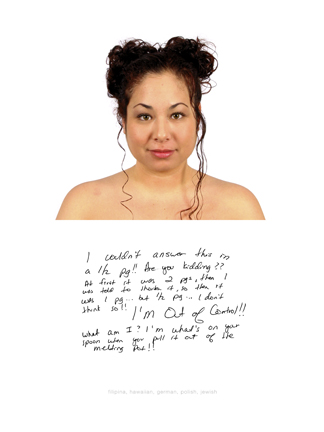 I couldn't answer this in
a 1/2 pg!! Are you kidding??
At first it was 2 pgs, then I
was told to shorten it, so then it
was 1 pg... but 1/2 pg... I don't
think so!! I'm Out of Control!!
What am I? I'm what's on your
spoon when you pull it out of the
melting pot!!
filipina, hawaiian, german, polish, jewish